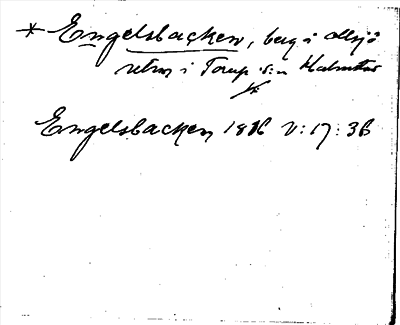 * Engelsbacken, berg i Allsjö
utm i Torup s:n Halmstad
Engelsbacken 1886 V:17:36